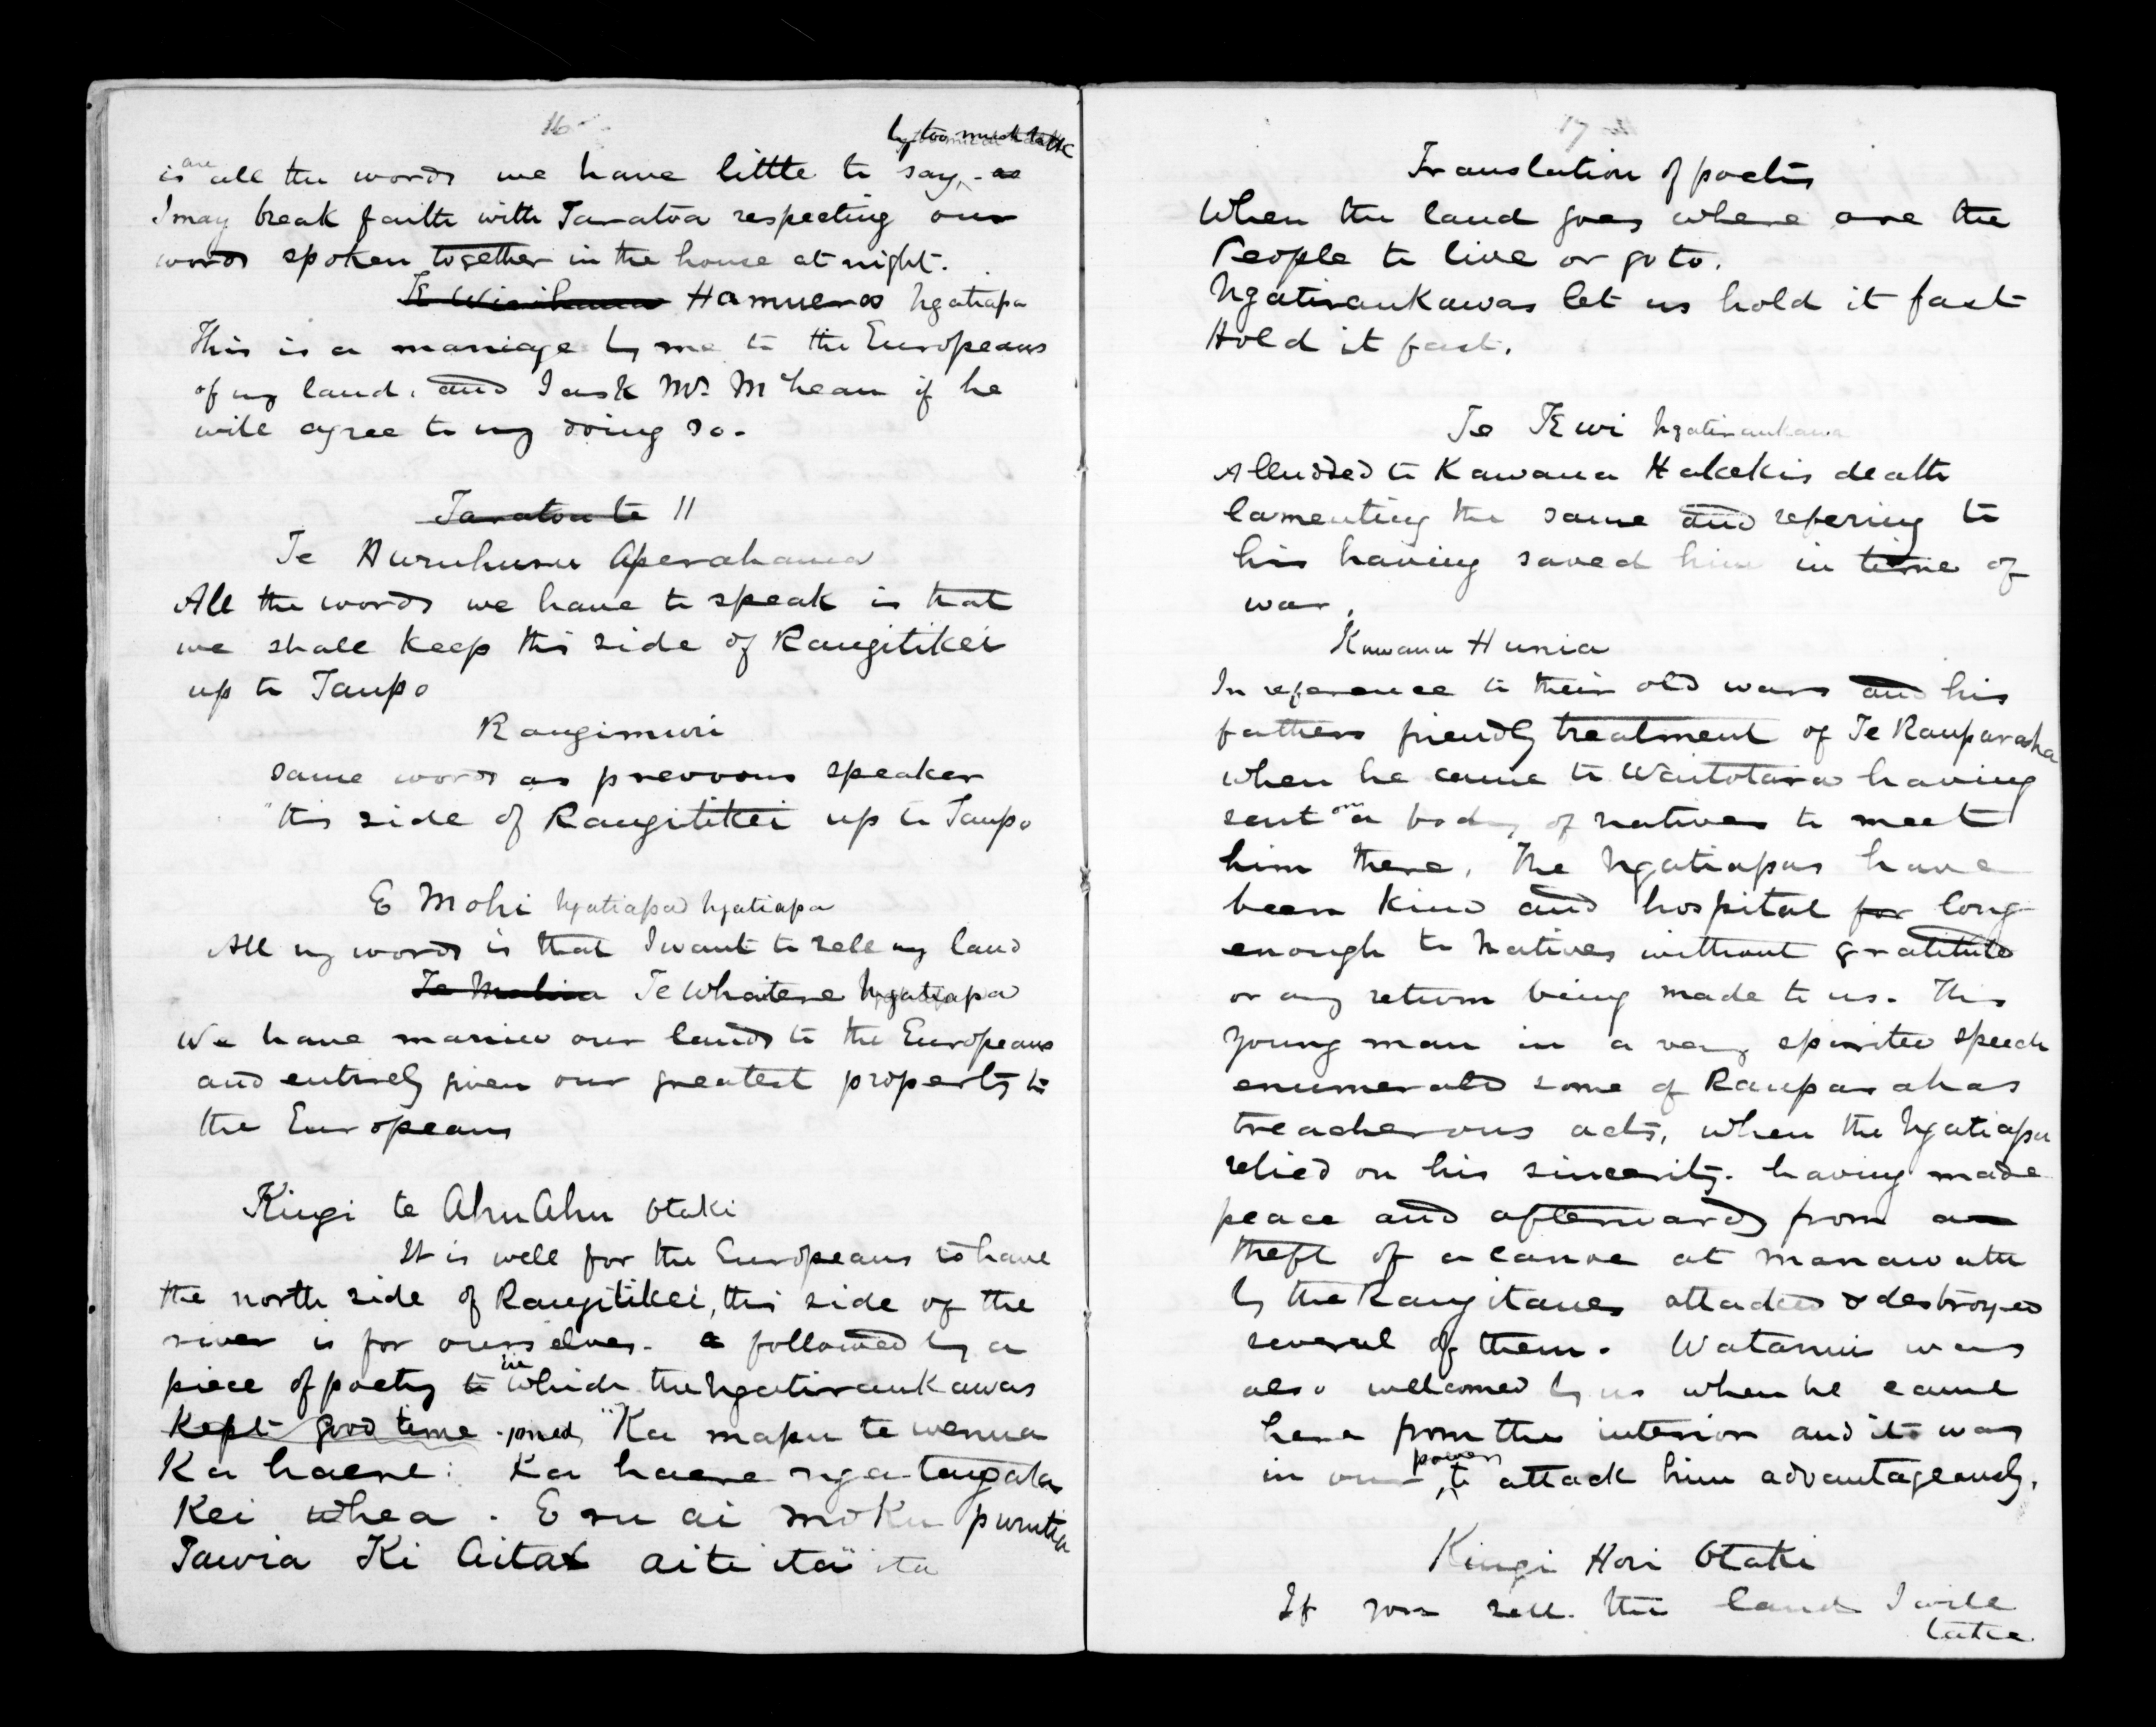 16
by too much talk
is are all the words we have little to say, as
I may break faith with Taratoa respecting our
words spoken together in the house at night.
Te Wirihana Hamuera Ngatiapa
This is a marriage by me to the Europeans
of my land. and I ask Mr. McLean if he
will agree to my doing so.
Taratoa te 11
Te Huruhuru Aperahama
All the words we have to speak is that
we shall keep this side of Rangitikei
up to Taupo
Rangimuri
same words as prevoous speaker
"this side of Rangitikei up to Taupo
E Mohi Ngatiapa Ngatiapa
All my words is that I want to sell my land
Te Whaitere Ngatiapa
We have married our lands to the Europeans
and entirely given our greatest property to
the Europeans
Kingi te AhuAhu Otaki
It is well for the Europeans to have
the north side of Rangitikei, this side of the
river is for ourselves. a followed by a
piece of poetry to in which the Ngatiraukawas
kept good time joined, "Ka mapu te wenua
Ka haere: Ka haere nga tangata
Kei whea. E ru ai moku puruta
Tawia Ki Aita aite ita" ita
17
Translation of poetry
When the land goes where are the
People to live or go to.
Ngatiraukawas let us hold it fast
Hold it fast.
Te Kewi Ngatiraukawa
Alludded to Kawana Hakekis death
lamenting the same and refering to
his having saved him in time of
war.
Kawana Hunia
In reference to their old wars and his
fathers friendly treatment of Te Rauparaha
when he came to Waitotara having
sent on a body of natives to meet
him there. The Ngatiapas have
been kind and hospital for long
enough to Natives without gratitude
or any return being made to us. This
young man in a very spirited speech
enumerated some of Rauparahas
treacherous acts, when the Ngatiapa
relied on his sincerity. having made
peace and afterwards from a
theft of a canoe at Manawatu
by the Rangitanes attacked & destroyed
several of them. Watanui was
also welcomed by us when he came
here from the interior and it was
in our power to attack him advantageously.
Kingi Hori Otaki
If you sell the land I will
take